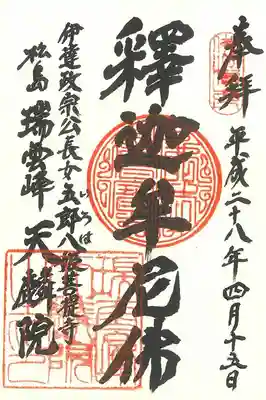 奉拝
平成二十八年四月十五日
釋迦牟尼佛
伊達政宗公長女五郎八姫菩提寺
いろは
松島 瑞雲峰 天麟院